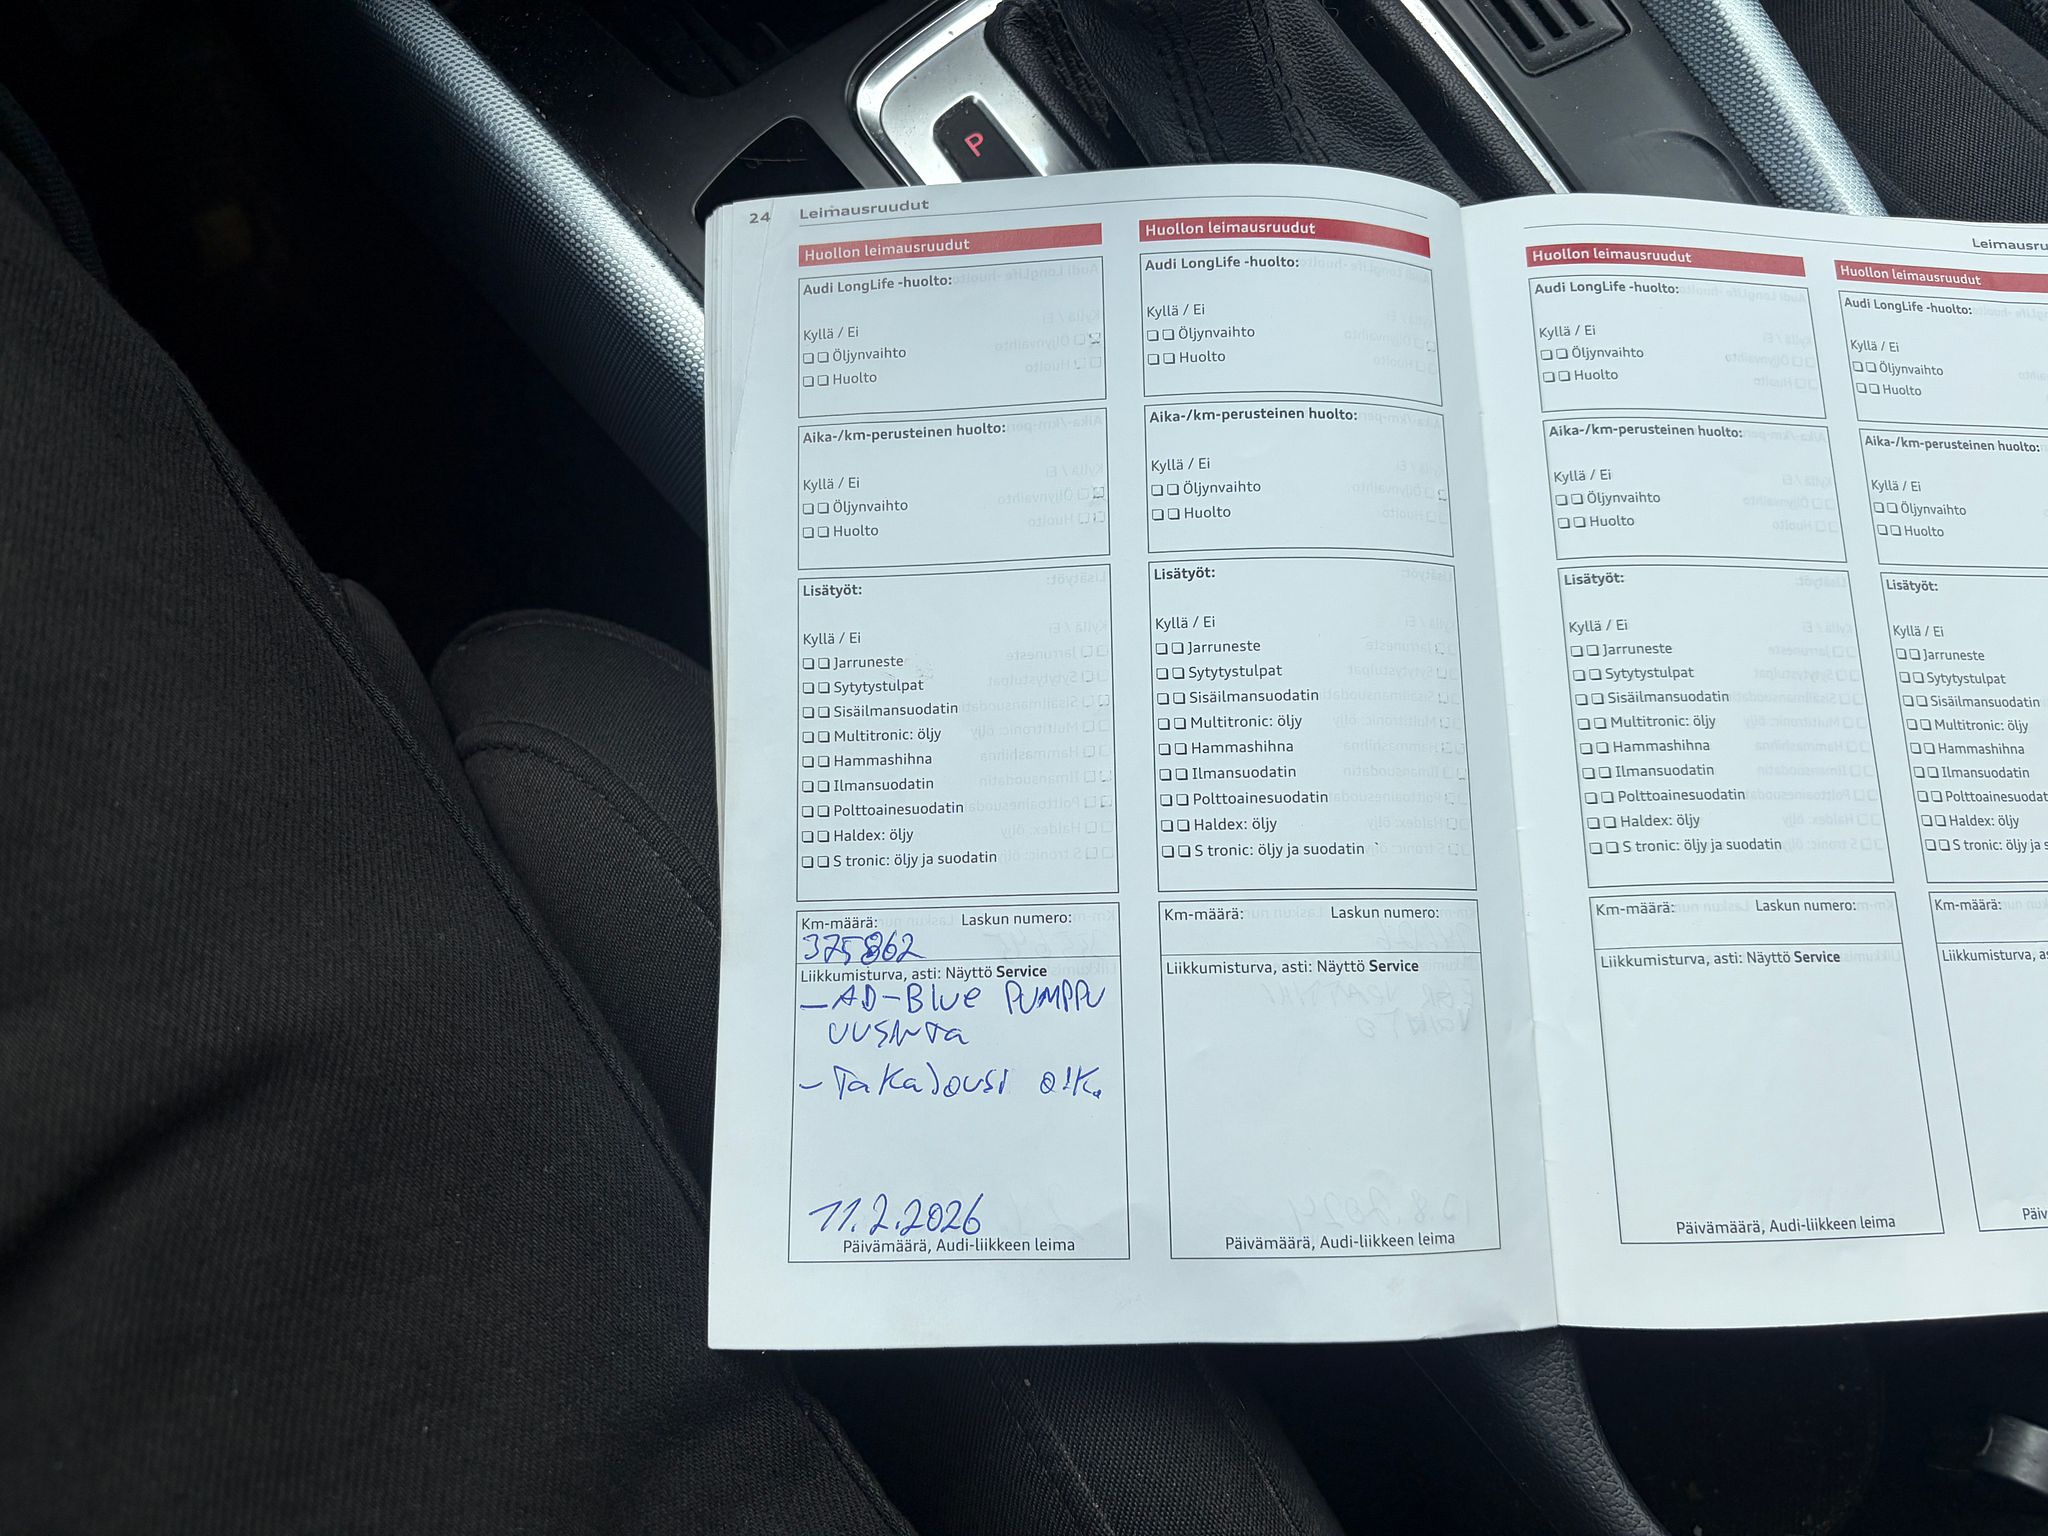 P
24 Leimausruudut
Huollon leimausruudut
Audi LongLife -huolto:
Kyllä / Ei
Öljynvaihto
Huolto
Aika-/km-perusteinen huolto:
Kyllä / Ei
Öljynvaihto
Huolto
Lisätyöt:
Kyllä / Ei
Jarruneste
Sytytystulpat
Sisäilmansuodatin
Multitronic: öljy
Hammashihna
Ilmansuodatin
Polttoainesuodatin
Haldex: öljy
S tronic: öljy ja suodatin
Km-määrä: Laskun numero:
375862
Liikkumisturva, asti: Näyttö Service
- AD-Blue PUMPPU
UUSINTA
- Takajousi oik.
11.2.2026
Päivämäärä, Audi-liikkeen leima
Huollon leimausruudut
Audi LongLife -huolto:
Kyllä / Ei
Öljynvaihto
Huolto
Aika-/km-perusteinen huolto:
Kyllä / Ei
Öljynvaihto
Huolto
Lisätyöt:
Kyllä / Ei
Jarruneste
Sytytystulpat
Sisäilmansuodatin
Multitronic: öljy
Hammashihna
Ilmansuodatin
Polttoainesuodatin
Haldex: öljy
S tronic: öljy ja suodatin
Km-määrä: Laskun numero:
Liikkumisturva, asti: Näyttö Service
Päivämäärä, Audi-liikkeen leima
Leimausru
Huollon leimausruudut
Audi LongLife -huolto:
Kyllä / Ei
Öljynvaihto
Huolto
Aika-/km-perusteinen huolto:
Kyllä / Ei
Öljynvaihto
Huolto
Lisätyöt:
Kyllä / Ei
Jarruneste
Sytytystulpat
Sisäilmansuodatin
Multitronic: öljy
Hammashihna
Ilmansuodatin
Polttoainesuodatin
Haldex: öljy
S tronic: öljy ja suodatin
Km-määrä: Laskun numero:
Liikkumisturva, asti: Näyttö Service
Päivämäärä, Audi-liikkeen leima
Huollon leimausruudut
Audi LongLife -huolto:
Kyllä / Ei
Öljynvaihto
Huolto
Aika-/km-perusteinen huolto:
Kyllä / Ei
Öljynvaihto
Huolto
Lisätyöt:
Kyllä / Ei
Jarruneste
Sytytystulpat
Sisäilmansuodatin
Multitronic: öljy
Hammashihna
Ilmansuodatin
Polttoainesuodat
Haldex: öljy
S tronic: öljy ja s
Km-määrä:
Liikkumisturva, as
Päiv